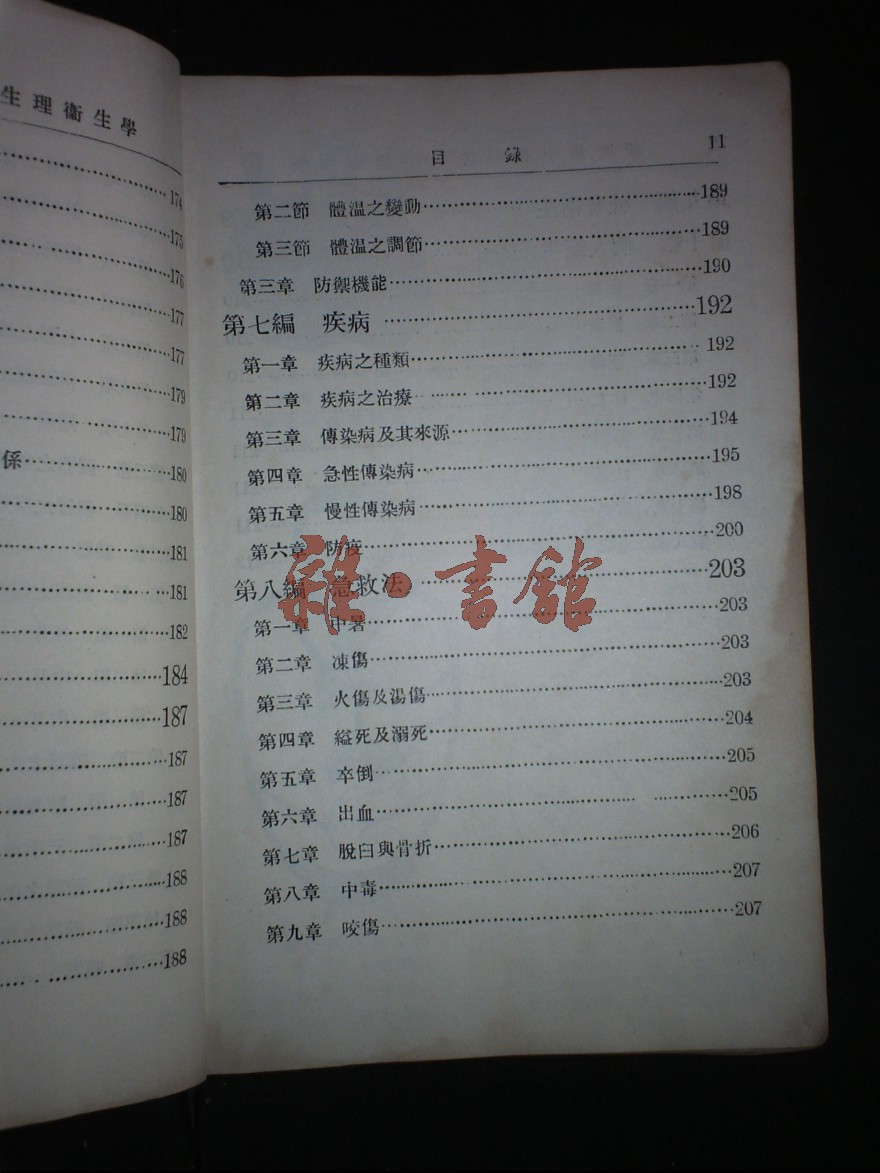 生理衞生學
174
175
176
177
177
179
179
係 180
180
181
181
182
184
187
187
187
187
188
188
188
目錄 11
第二節 體温之變動 189
第三節 體温之調節 189
第三章 防禦機能 190
第七編 疾病 192
第一章 疾病之種類 192
第二章 疾病之治療 192
第三章 傳染病及其來源 194
第四章 急性傳染病 195
第五章 慢性傳染病 198
第六章 防疫 200
第八編 急救法 203
第一章 中暑 203
第二章 凍傷 203
第三章 火傷及湯傷 203
第四章 縊死及溺死 204
第五章 卒倒 205
第六章 出血 205
第七章 脫臼與骨折 206
第八章 中毒 207
第九章 咬傷 207
雜·書館